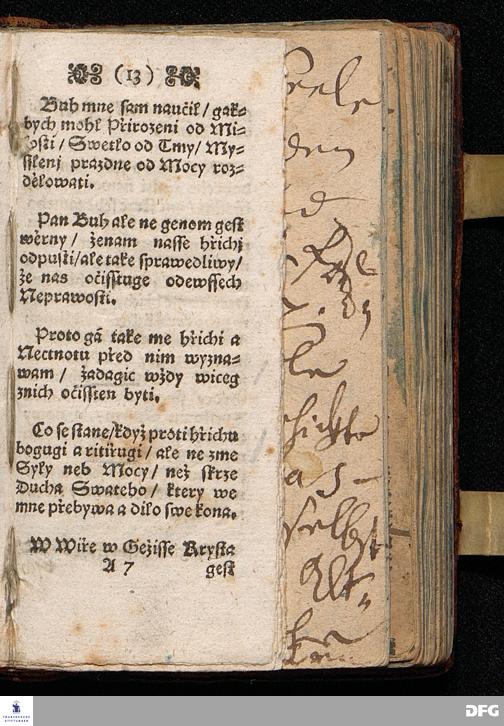 (13)
Buh mne sam naučil / gak-
bych mohl Přirozeni od Mi-
losti / Swetlo od Tmy / My-
sslenj prazdne od Mocy roz-
dělowati.
Pan Buh ale ne genom gest
wěrny / ženam nasse hřichj
odpusti / ale take sprawedliwy /
že nas očisstuge odewssech
Neprawosti.
Proto gá take me hřichi a
Nectnotu před nim wyzna-
wam / žadagic wždy wiceg
znich očissten byti.
Co se stane / když proti hřichu
bogugi a ritiřugi / ale ne zme
Syly neb Mocy / než skrze
Ducha Swateho / ktery we
mne přebywa a dilo swe kona.
W Wiře w Gežisse Krysta
A 7 gest
eele
den
d
le
selbst
FRANCKESCHE
STIFTUNGEN
DFG